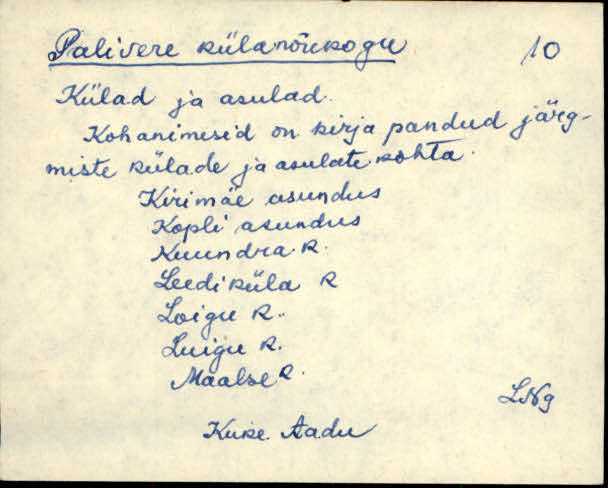 Palivere külanõukogu 10
Külad ja asulad.
Kohanimesid on kirja pandud järg-
miste külade ja asulate kohta.
Kirimäe asundus
Kopli asundus
Kuundra k.
Leediküla k
Loigu k.
Luigu k.
Maalse k.
LNg
Kuke Aadu